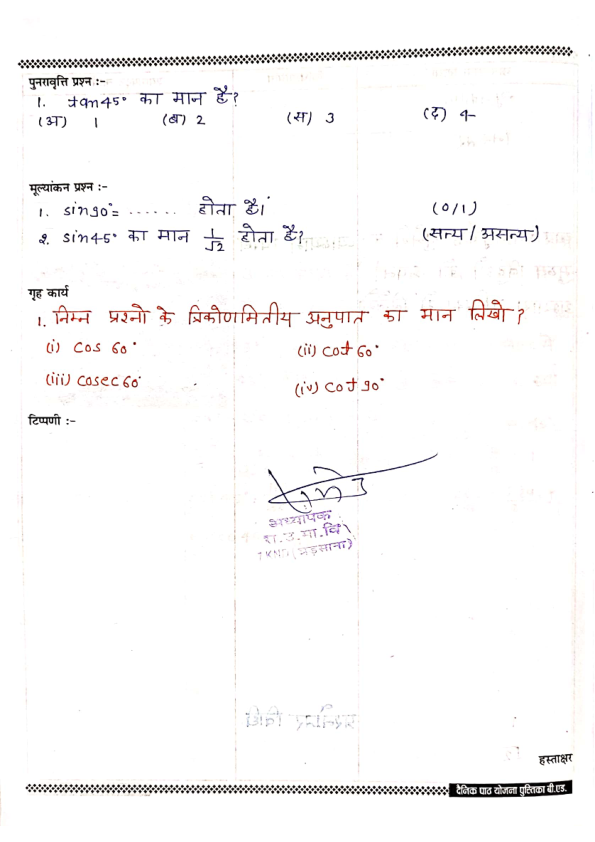 पुनरावृत्ति प्रश्न :-
1. tan45° का मान है?
(अ) 1 (ब) 2 (स) 3 (द) 4
मूल्यांकन प्रश्न :-
1. sin90°= ...... होता है। (0/1)
2. sin45° का मान 1/√2 होता है? (सत्य / असत्य)
गृह कार्य
1. निम्न प्रश्नो के त्रिकोणमितीय अनुपात का मान लिखो ?
(i) cos 60° (ii) cot 60°
(iii) cosec 60° (iv) cot 90°
टिप्पणी :-
अध्यापक
रा.उ.मा.वि
हस्ताक्षर
दैनिक पाठ योजना पुस्तिका बी.एड.